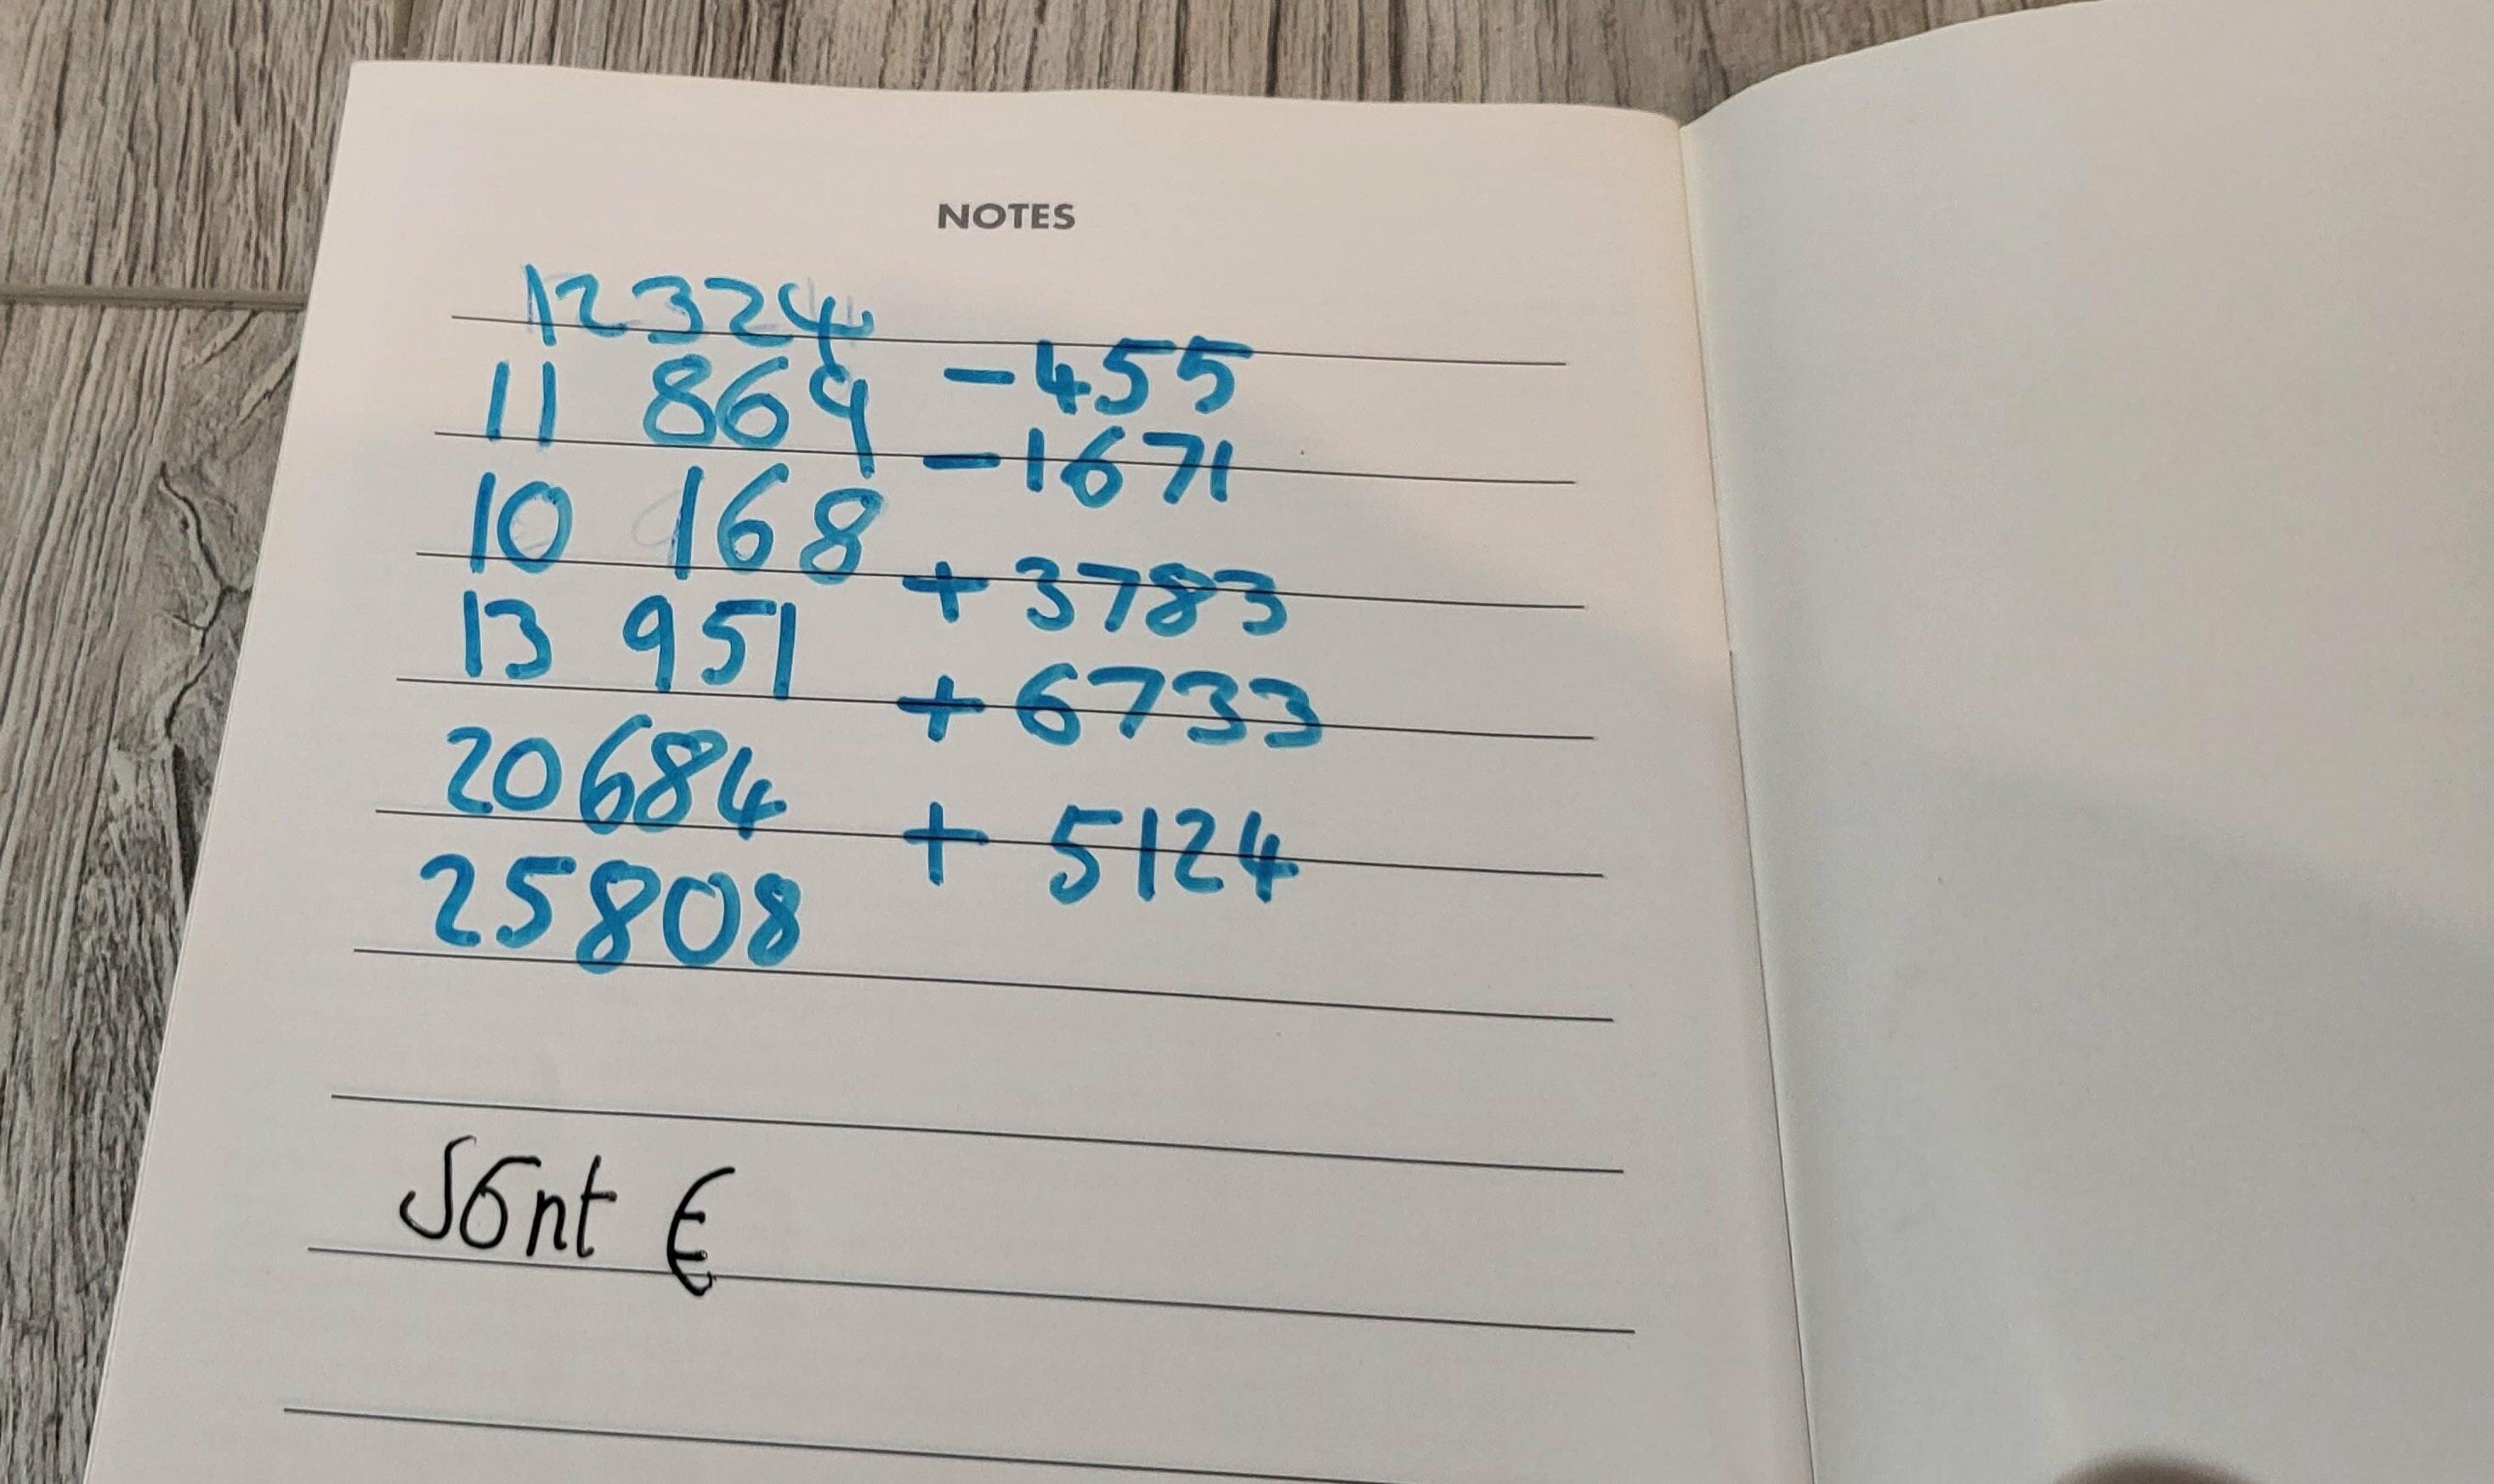 NOTES
12324
11 869 -455
10 168 -1671
13 951 +3783
20684 +6733
25808 + 5124
Sont €